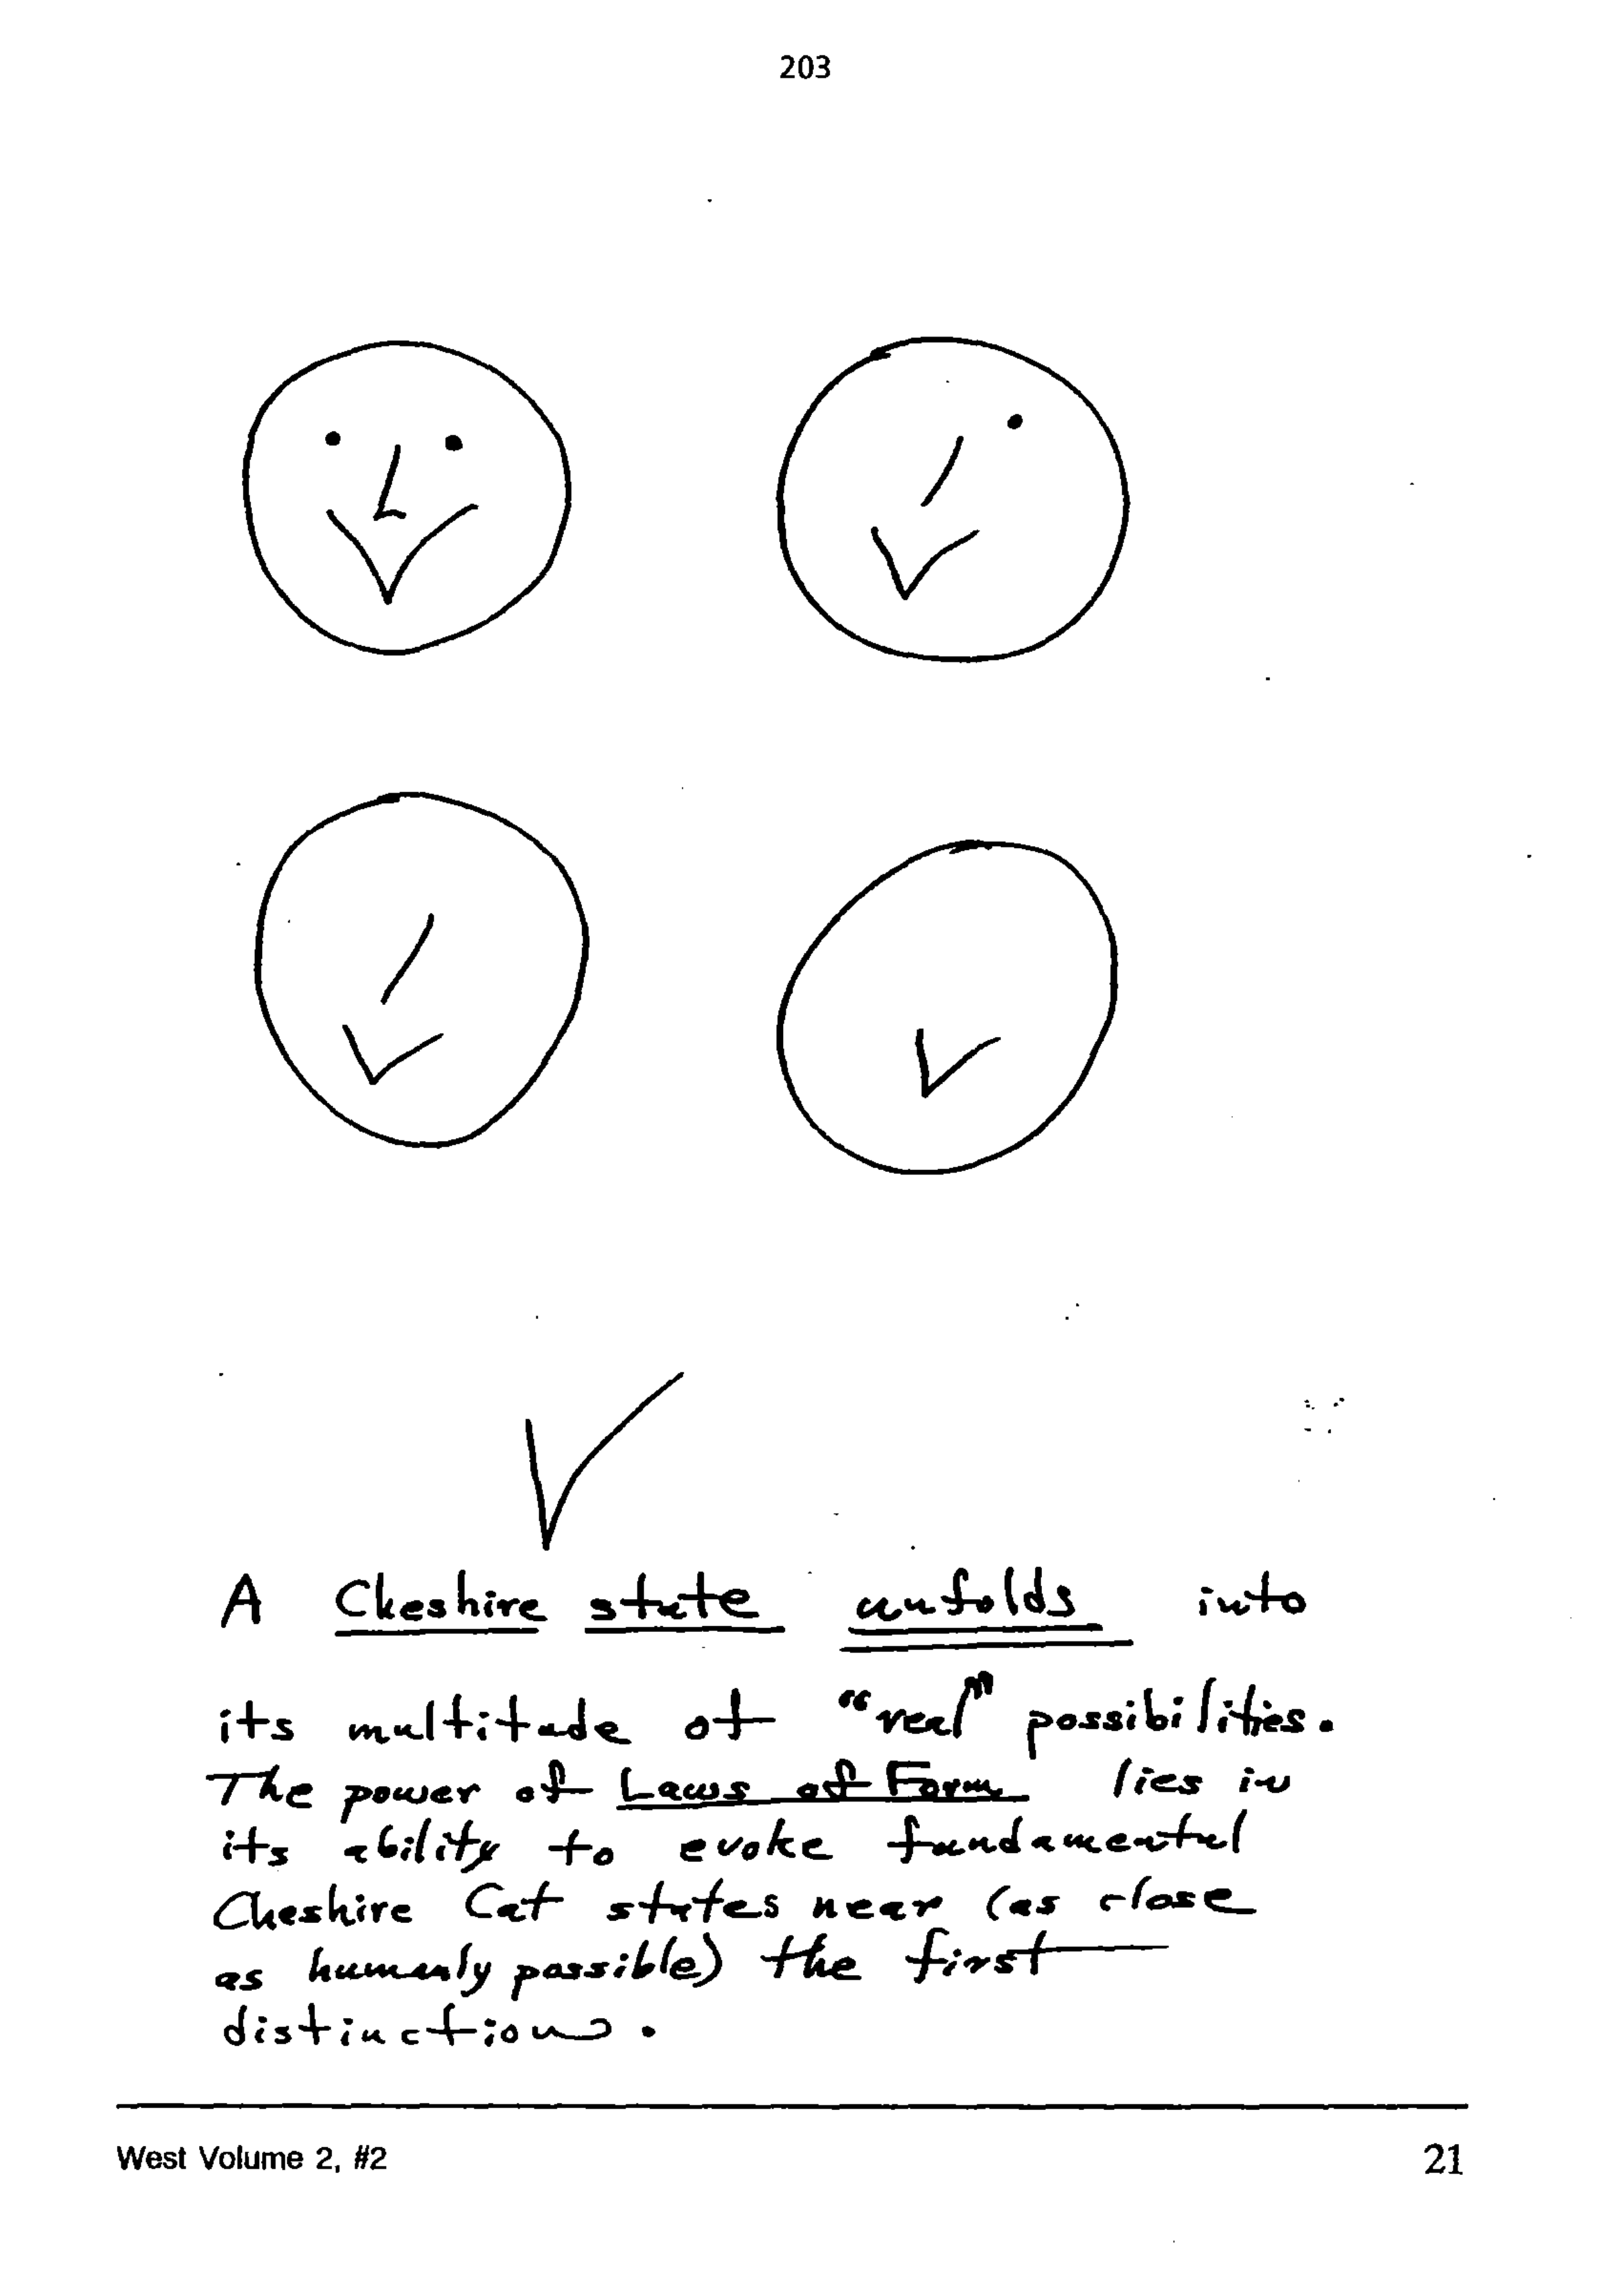 203
A Cheshire state unfolds into
its multitude of "real" possibilities.
The power of Laws of Form lies in
its ability to evoke fundamental
Cheshire Cat states near (as close
as humanly possible) the first
distinction.
West Volume 2, #2
21